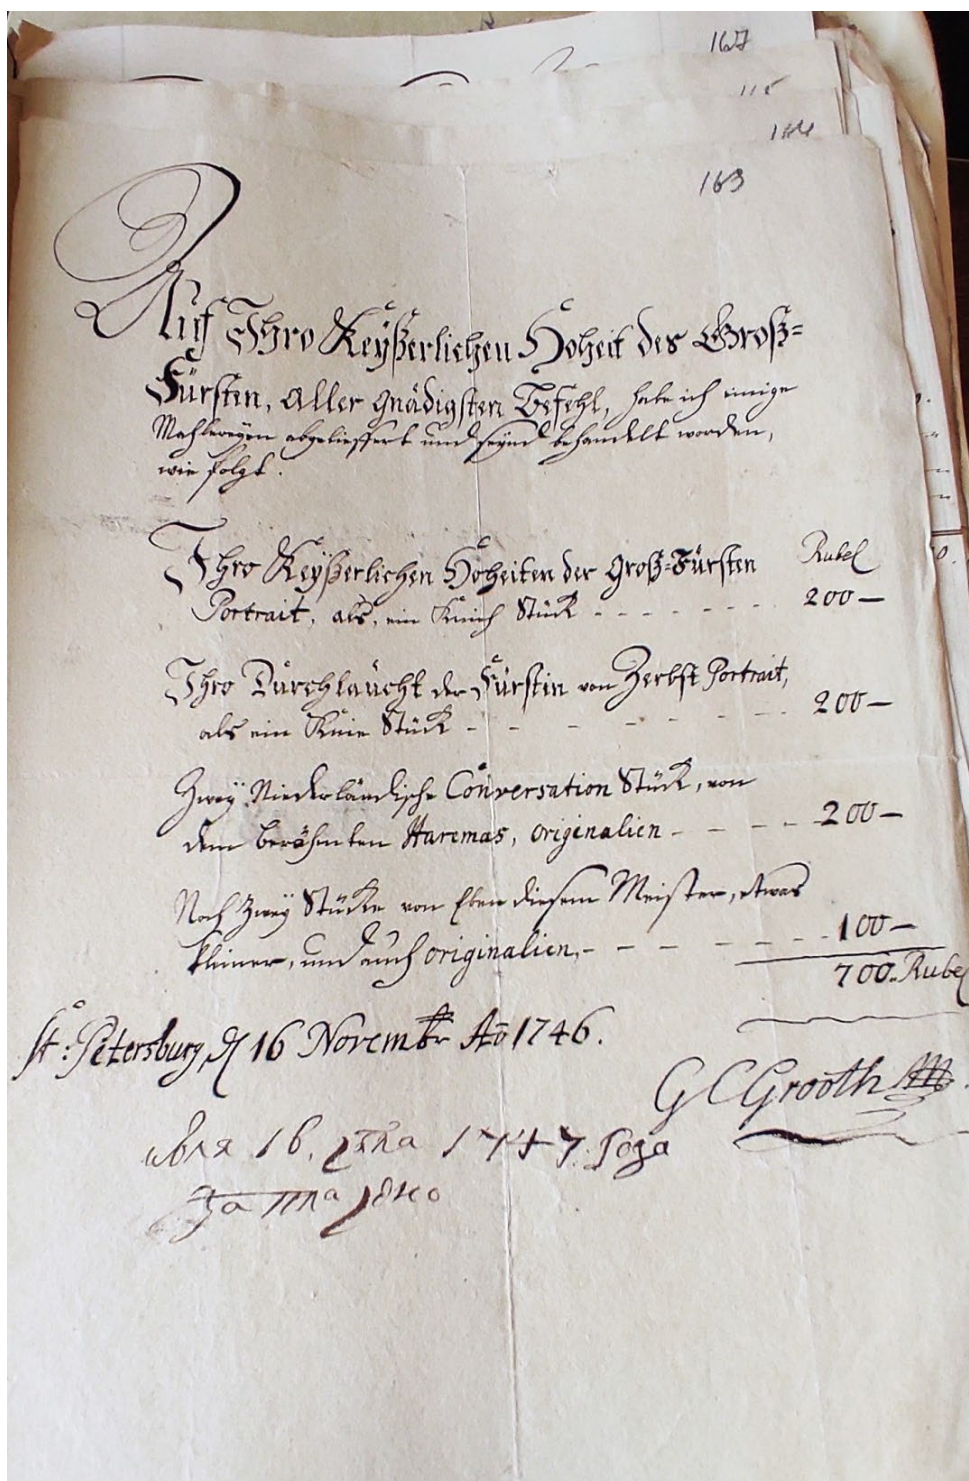 167
115
164
163
Auf Ihro Keyßerlichen Hoheit des Groß=
Fürstin, aller gnädigsten Befehl, habe ich einige
Mahlereyen abgelieffert und seynd behandelt worden,
wie folgt.
Ihro Keyßerlichen Hoheiten der Groß=Fürsten Rubel
Portrait, als, ein Knieh Stück - - - - - - - 200 —
Ihro Durchlaücht der Fürstin von Zerbst Portrait,
als ein Knie Stück - - - - - - - 200 —
Zwey Niederländische Conversation Stück, von
dem berühmten Haremas, originalien - - - - 200 —
Noch zwey Stücke von Eben diesem Meister, etwas
kleiner, und auch originalien, - - - - - - 100 —
700. Rubel
St: Petersburg, d 16 Novembr Ao 1746.
GCGrooth
июля 16. дня 1747 года